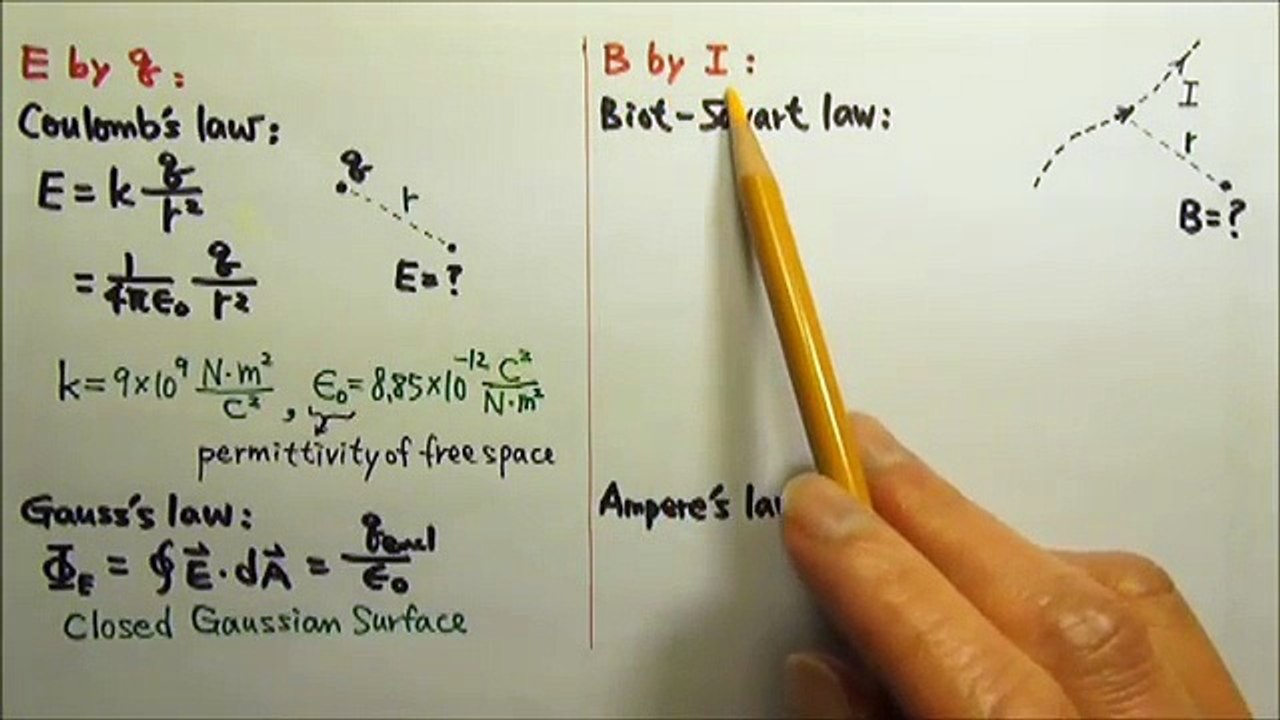 E by q:
Coulomb's law:
E = k q/r²
q
r
E = ?
= 1/4πϵ₀ q/r²
k = 9×10⁹ N·m²/C² , ϵ₀ = 8.85×10⁻¹² C²/N·m²
permittivity of free space
Gauss's law:
Φ_E = ∮ E⃗ · dA⃗ = q_encl/ϵ₀
Closed Gaussian Surface
B by I:
Biot-Savart law:
I
r
B = ?
Ampere's